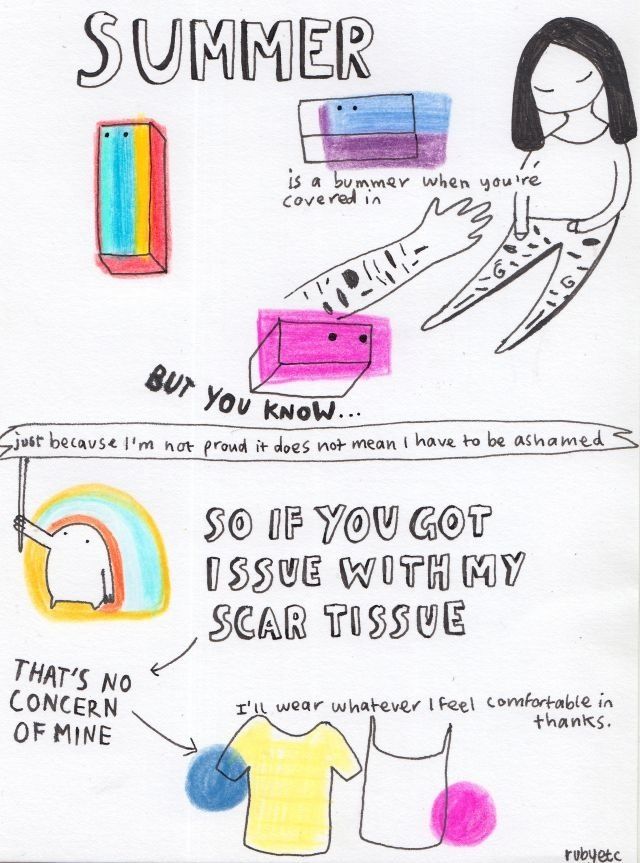 SUMMER
is a bummer when you're
covered in
BUT YOU KNOW...
just because I'm not proud it does not mean I have to be ashamed
SO IF YOU GOT
ISSUE WITH MY
SCAR TISSUE
THAT'S NO
CONCERN
OF MINE
I'll wear whatever I feel comfortable in
thanks.
rubyetc